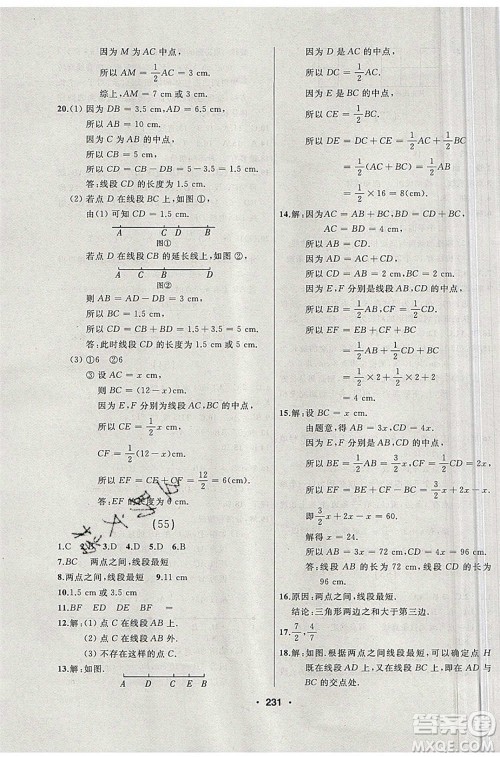 因为 M 为 AC 中点,
所以 AM=1/2AC=3 cm.
综上, AM=7 cm 或 3 cm.
20.(1) 因为 DB=3.5 cm, AD=6.5 cm,
所以 AB=10 cm.
因为 C 为 AB 的中点,
所以 CB=5 cm.
所以 CD=CB-DB=5-3.5=1.5(cm).
答:线段 CD 的长度为 1.5 cm.
(2) 若点 D 在线段 CB 上, 如图 ①,
由(1) 可知 CD=1.5 cm.
A C D B
图①
若点 D 在线段 CB 的延长线上, 如图②,
A C B D
图②
则 AB=AD-DB=3 cm.
所以 CB=1.5 cm.
所以 CD=CB+BD=1.5+3.5=5(cm).
答:此时线段 CD 的长度为 5 cm.
(3) ①6 ②6
③ 设 AC=x cm,
则 BC=(12-x)cm.
因为 E,F 分别为线段 AC,BC 的中点,
所以 CE=1/2x cm,
CF=1/2(12-x) cm.
所以 EF=CE+CF=12/2=6(cm).
答:EF 的长度为 6 cm.
(55)
1.C 3.D 4.D 5.D 6.B
7.BC 两点之间,线段最短
8.两点之间,线段最短 9.11 cm
10.1.5 cm 或 3.5 cm
11.BF ED BE BF
12.解:(1) 点 C 在线段 AB 上.
(2) 点 C 在线段 AB 外.
(3) 不存在这样的点 C.
13.解:如图.
A D C E B
因为 D 是 AC 的中点,
所以 DC=1/2AC.
因为 E 是 BC 的中点,
所以 CE=1/2BC.
所以 DE=DC+CE=1/2AC+1/2BC
=1/2(AC+BC)
=1/2AB
=1/2×16=8(cm).
14.解:因为 AC=AB+BC, BD=BC+CD,
AC=BD=4 cm,
所以 AB=CD.
因为 BC=2 cm, 所以 AB=CD=2 cm.
因为 E,F 分别是线段 AB,CD 的中点,
所以 BE=1/2AB, CF=1/2CD.
所以 EF=BE+BC+CF
=1/2AB+BC+1/2CD
=1/2×2+2+1/2×2
=4(cm).
15.解:设 BC=x cm.
由题意, 得 AB=3x, CD=4x.
因为 E,F 分别是 AB,CD 的中点,
所以 BE=1/2AB=3/2x, CF=1/2CD=2x.
所以 EF=BE+CF-BC=3/2x+2x-x.
所以3/2x+2x-x=60.
解得 x=24.
所以线段 AB 长为 72 cm, 线段 CD 长为 96 cm.
16.原因:两点之间,线段最短.
结论:三角形两边之和大于第三边.
17.7/2,4/7
18.解:如图. 根据两点之间线段最短, 可以确定点 H
既在线段 AD 上, 又在线段 BC 上, 是线段 AD 与
BC 的交点处.
• 231 •
作业精灵
答案圈
MXQE.COM